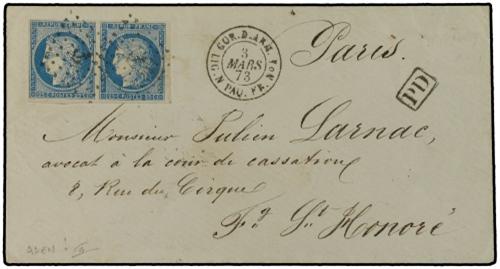 REPUB. FRANC. REPUB. FRANC.
25 C. POSTES 25 C. 25 C. POSTES 25 C.
COR. D. ARM. LIG. N PAQ. FR. Nº
3
MARS
73
Paris.
PD
Monsieur Julien Larnac,
avocat à la cour de cassation
8, Rue du Cirque
Fg St Honoré
ADEN